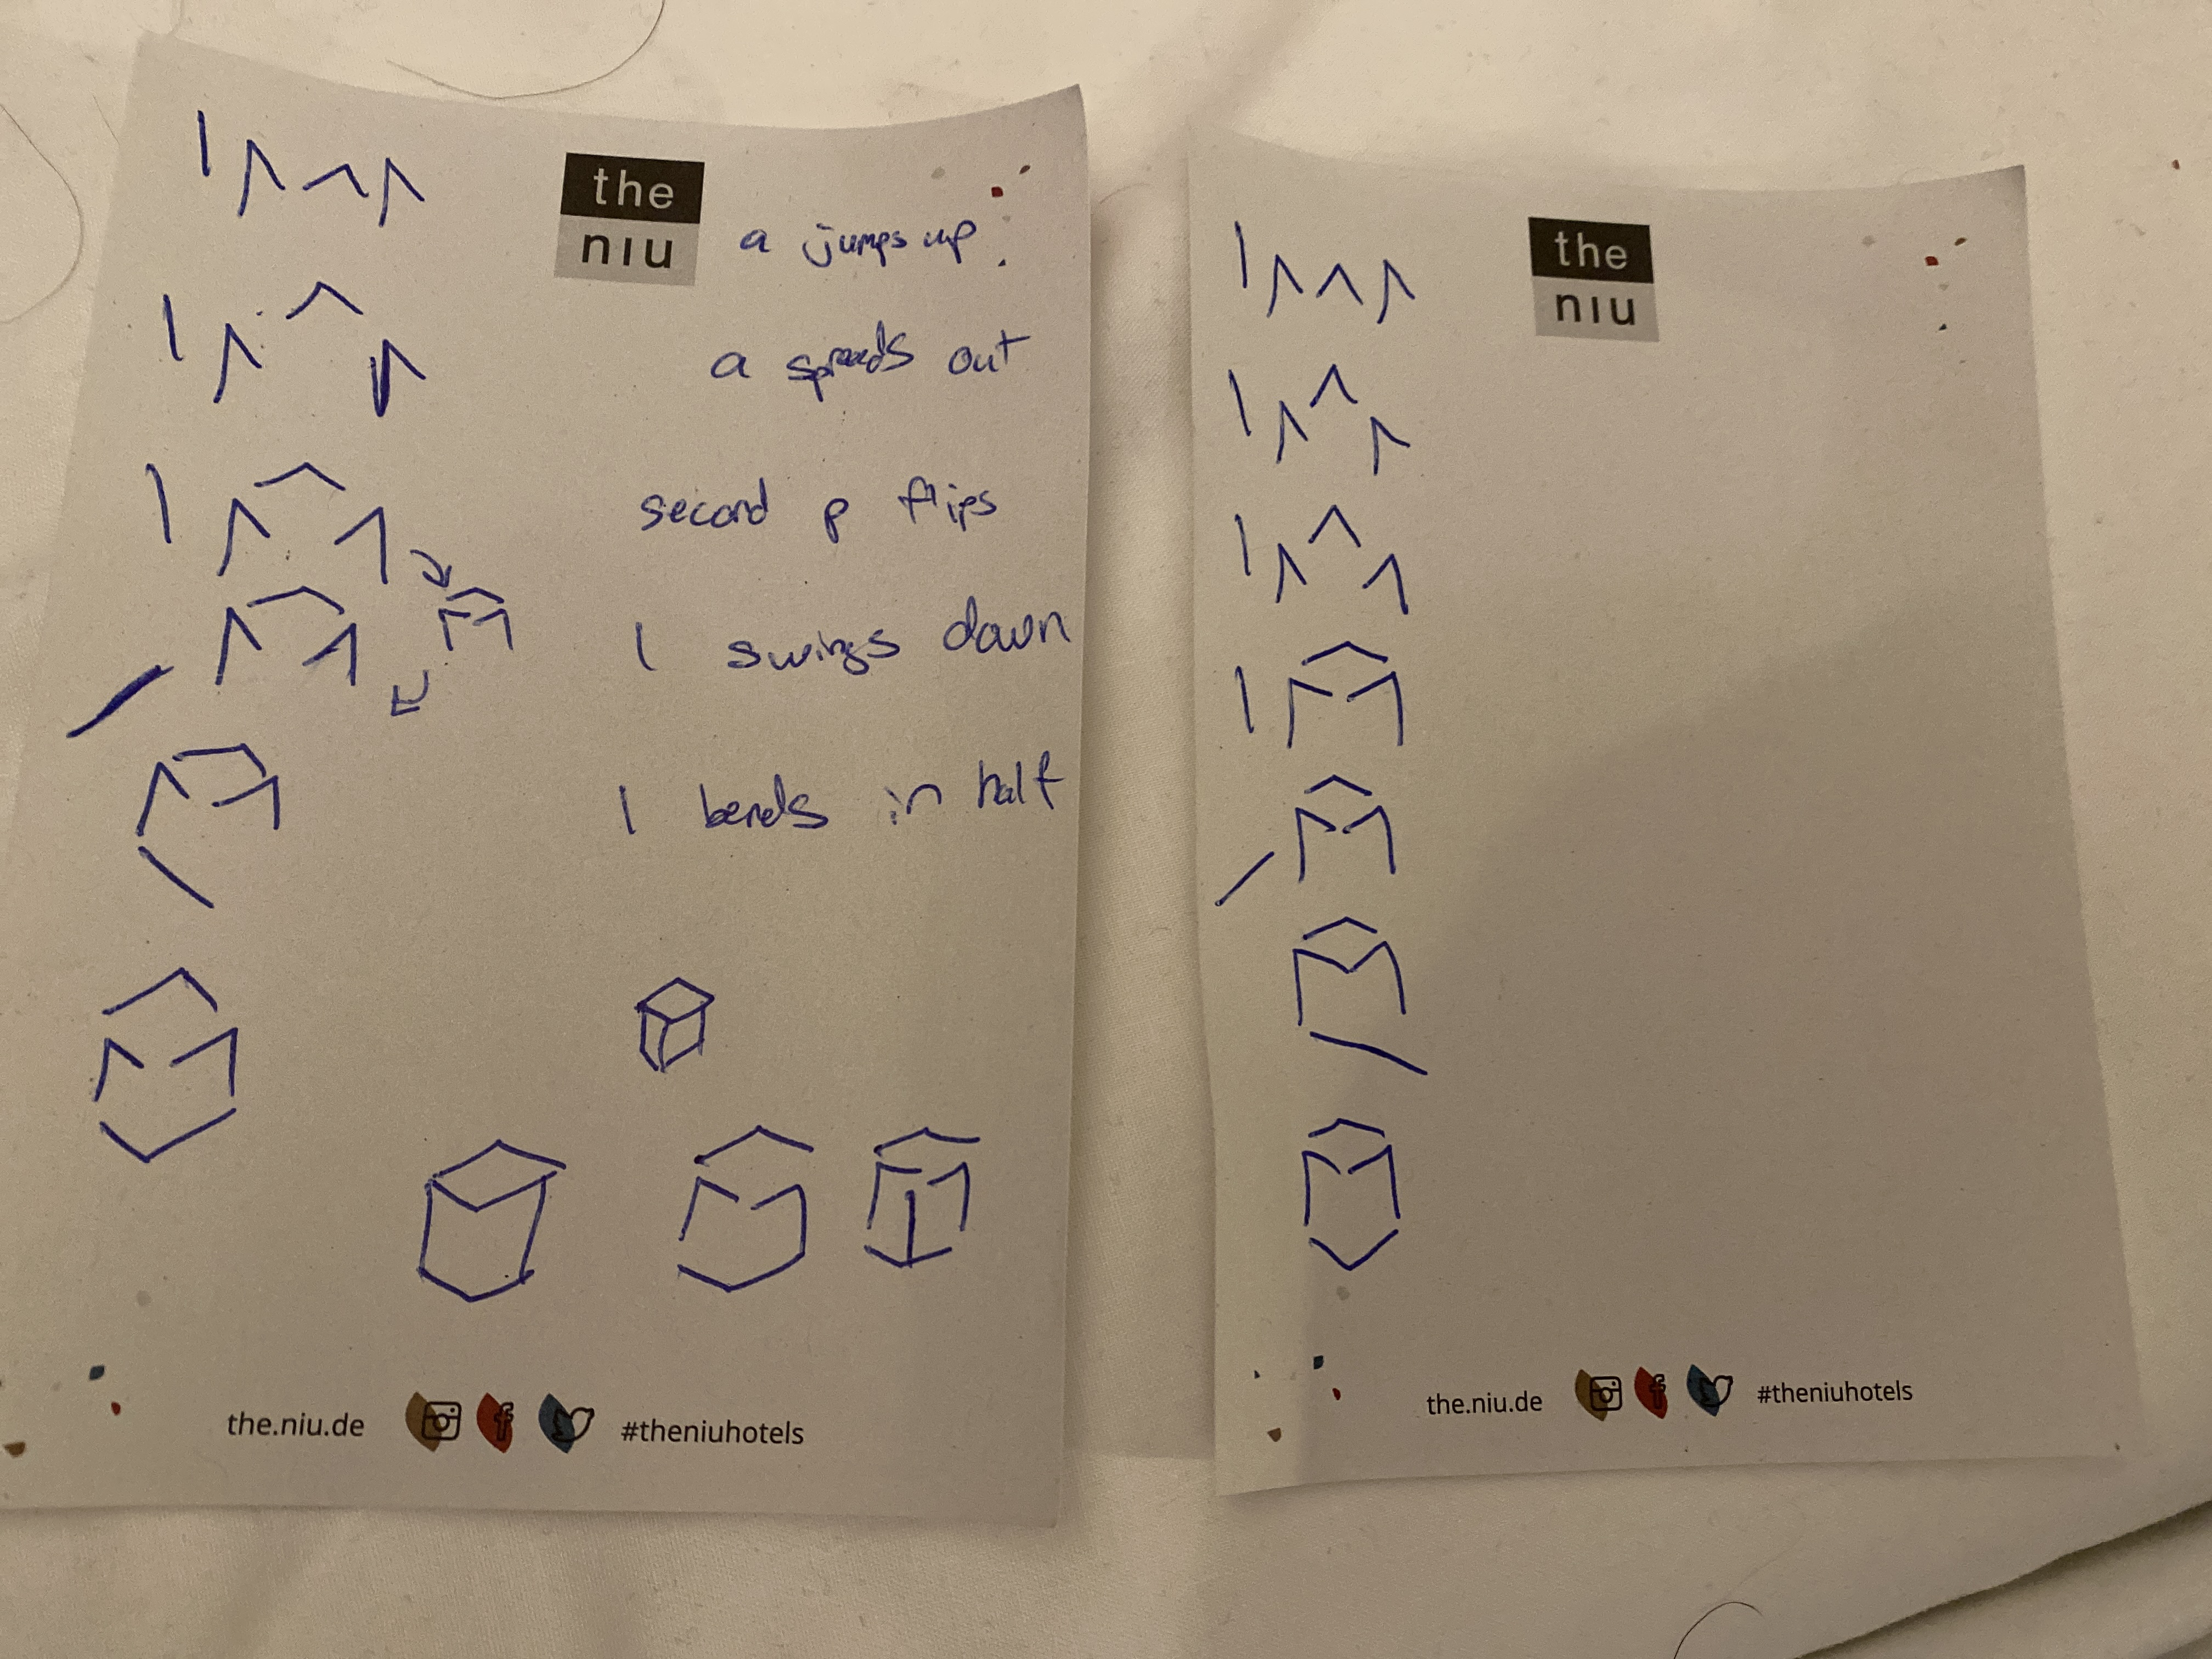 the
niu
a jumps up
a spreads out
second p flips
l swings down
l bends in half
the.niu.de #theniuhotels
the
niu
the.niu.de #theniuhotels